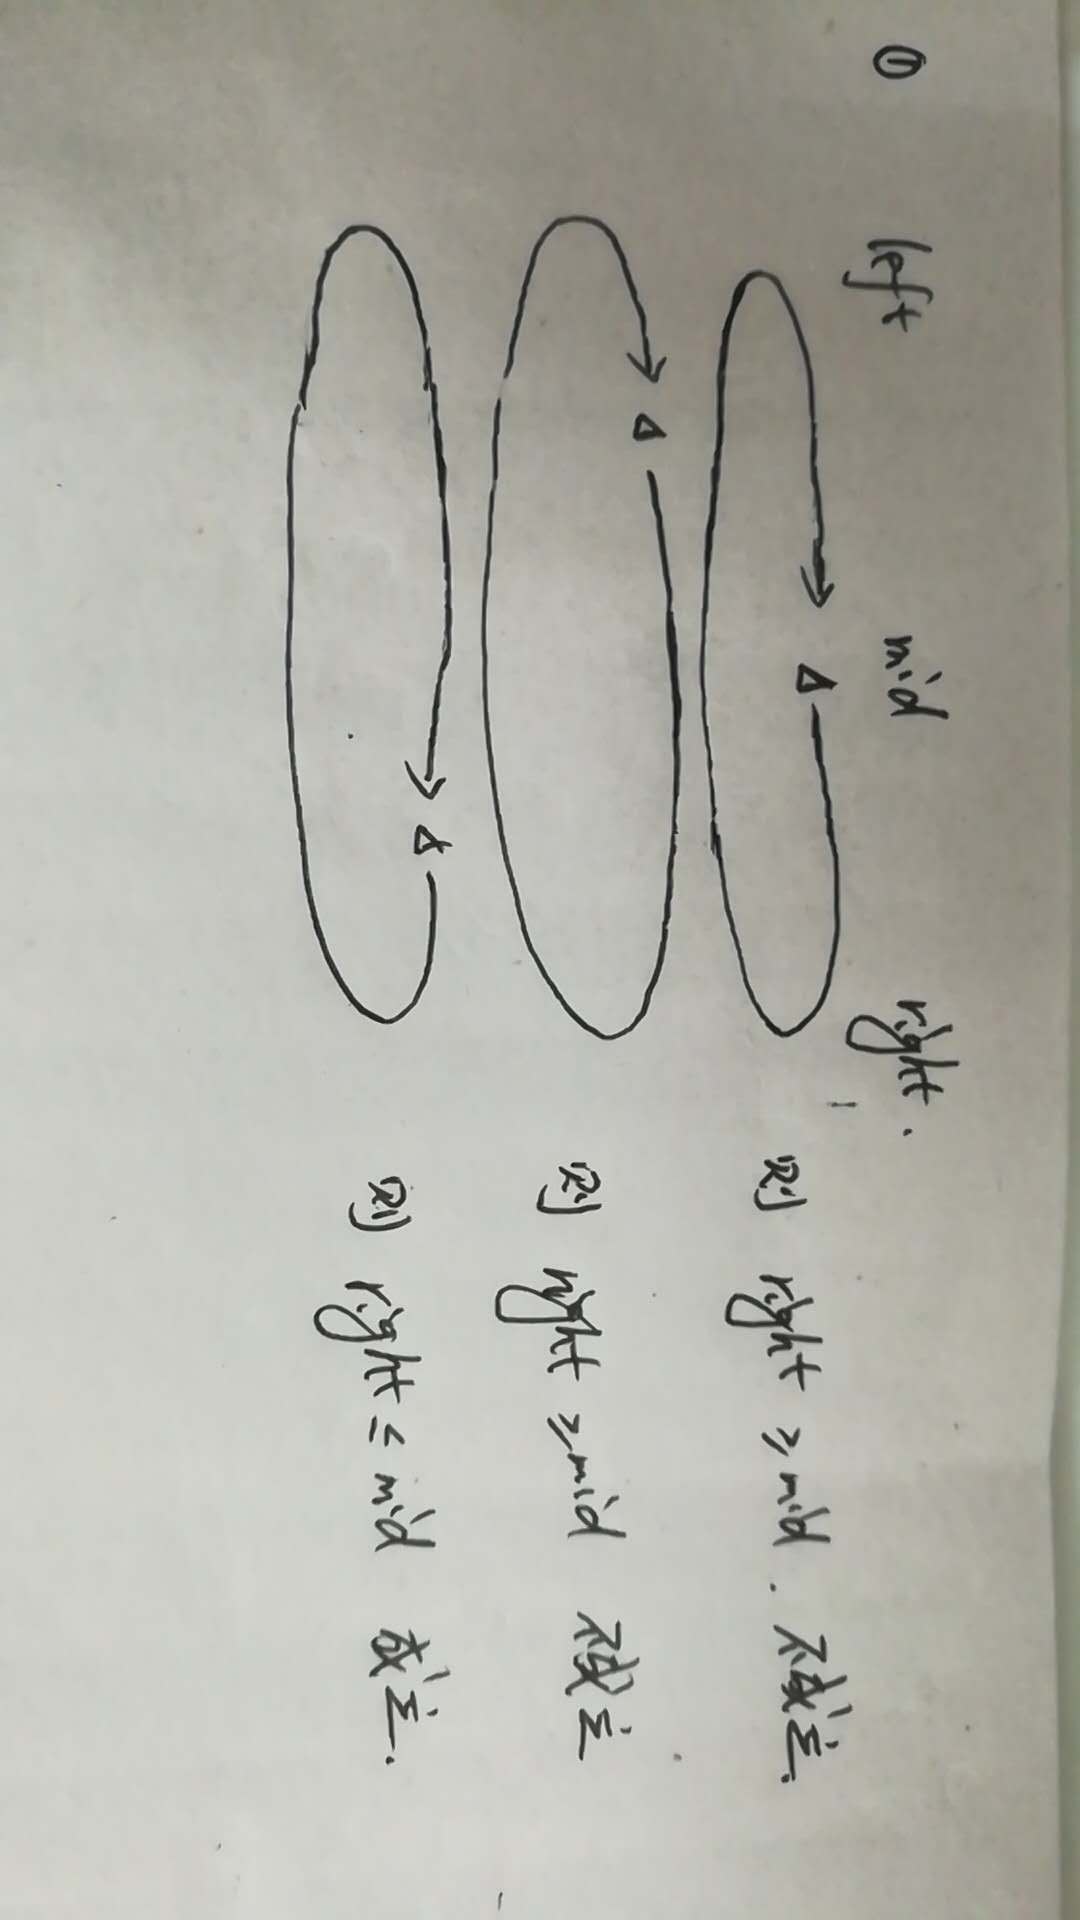 ① left mid right.
Δ 则 right ≥ mid. 不成立.
Δ 则 right ≥ mid 不成立
Δ 则 right ≤ mid 成立.